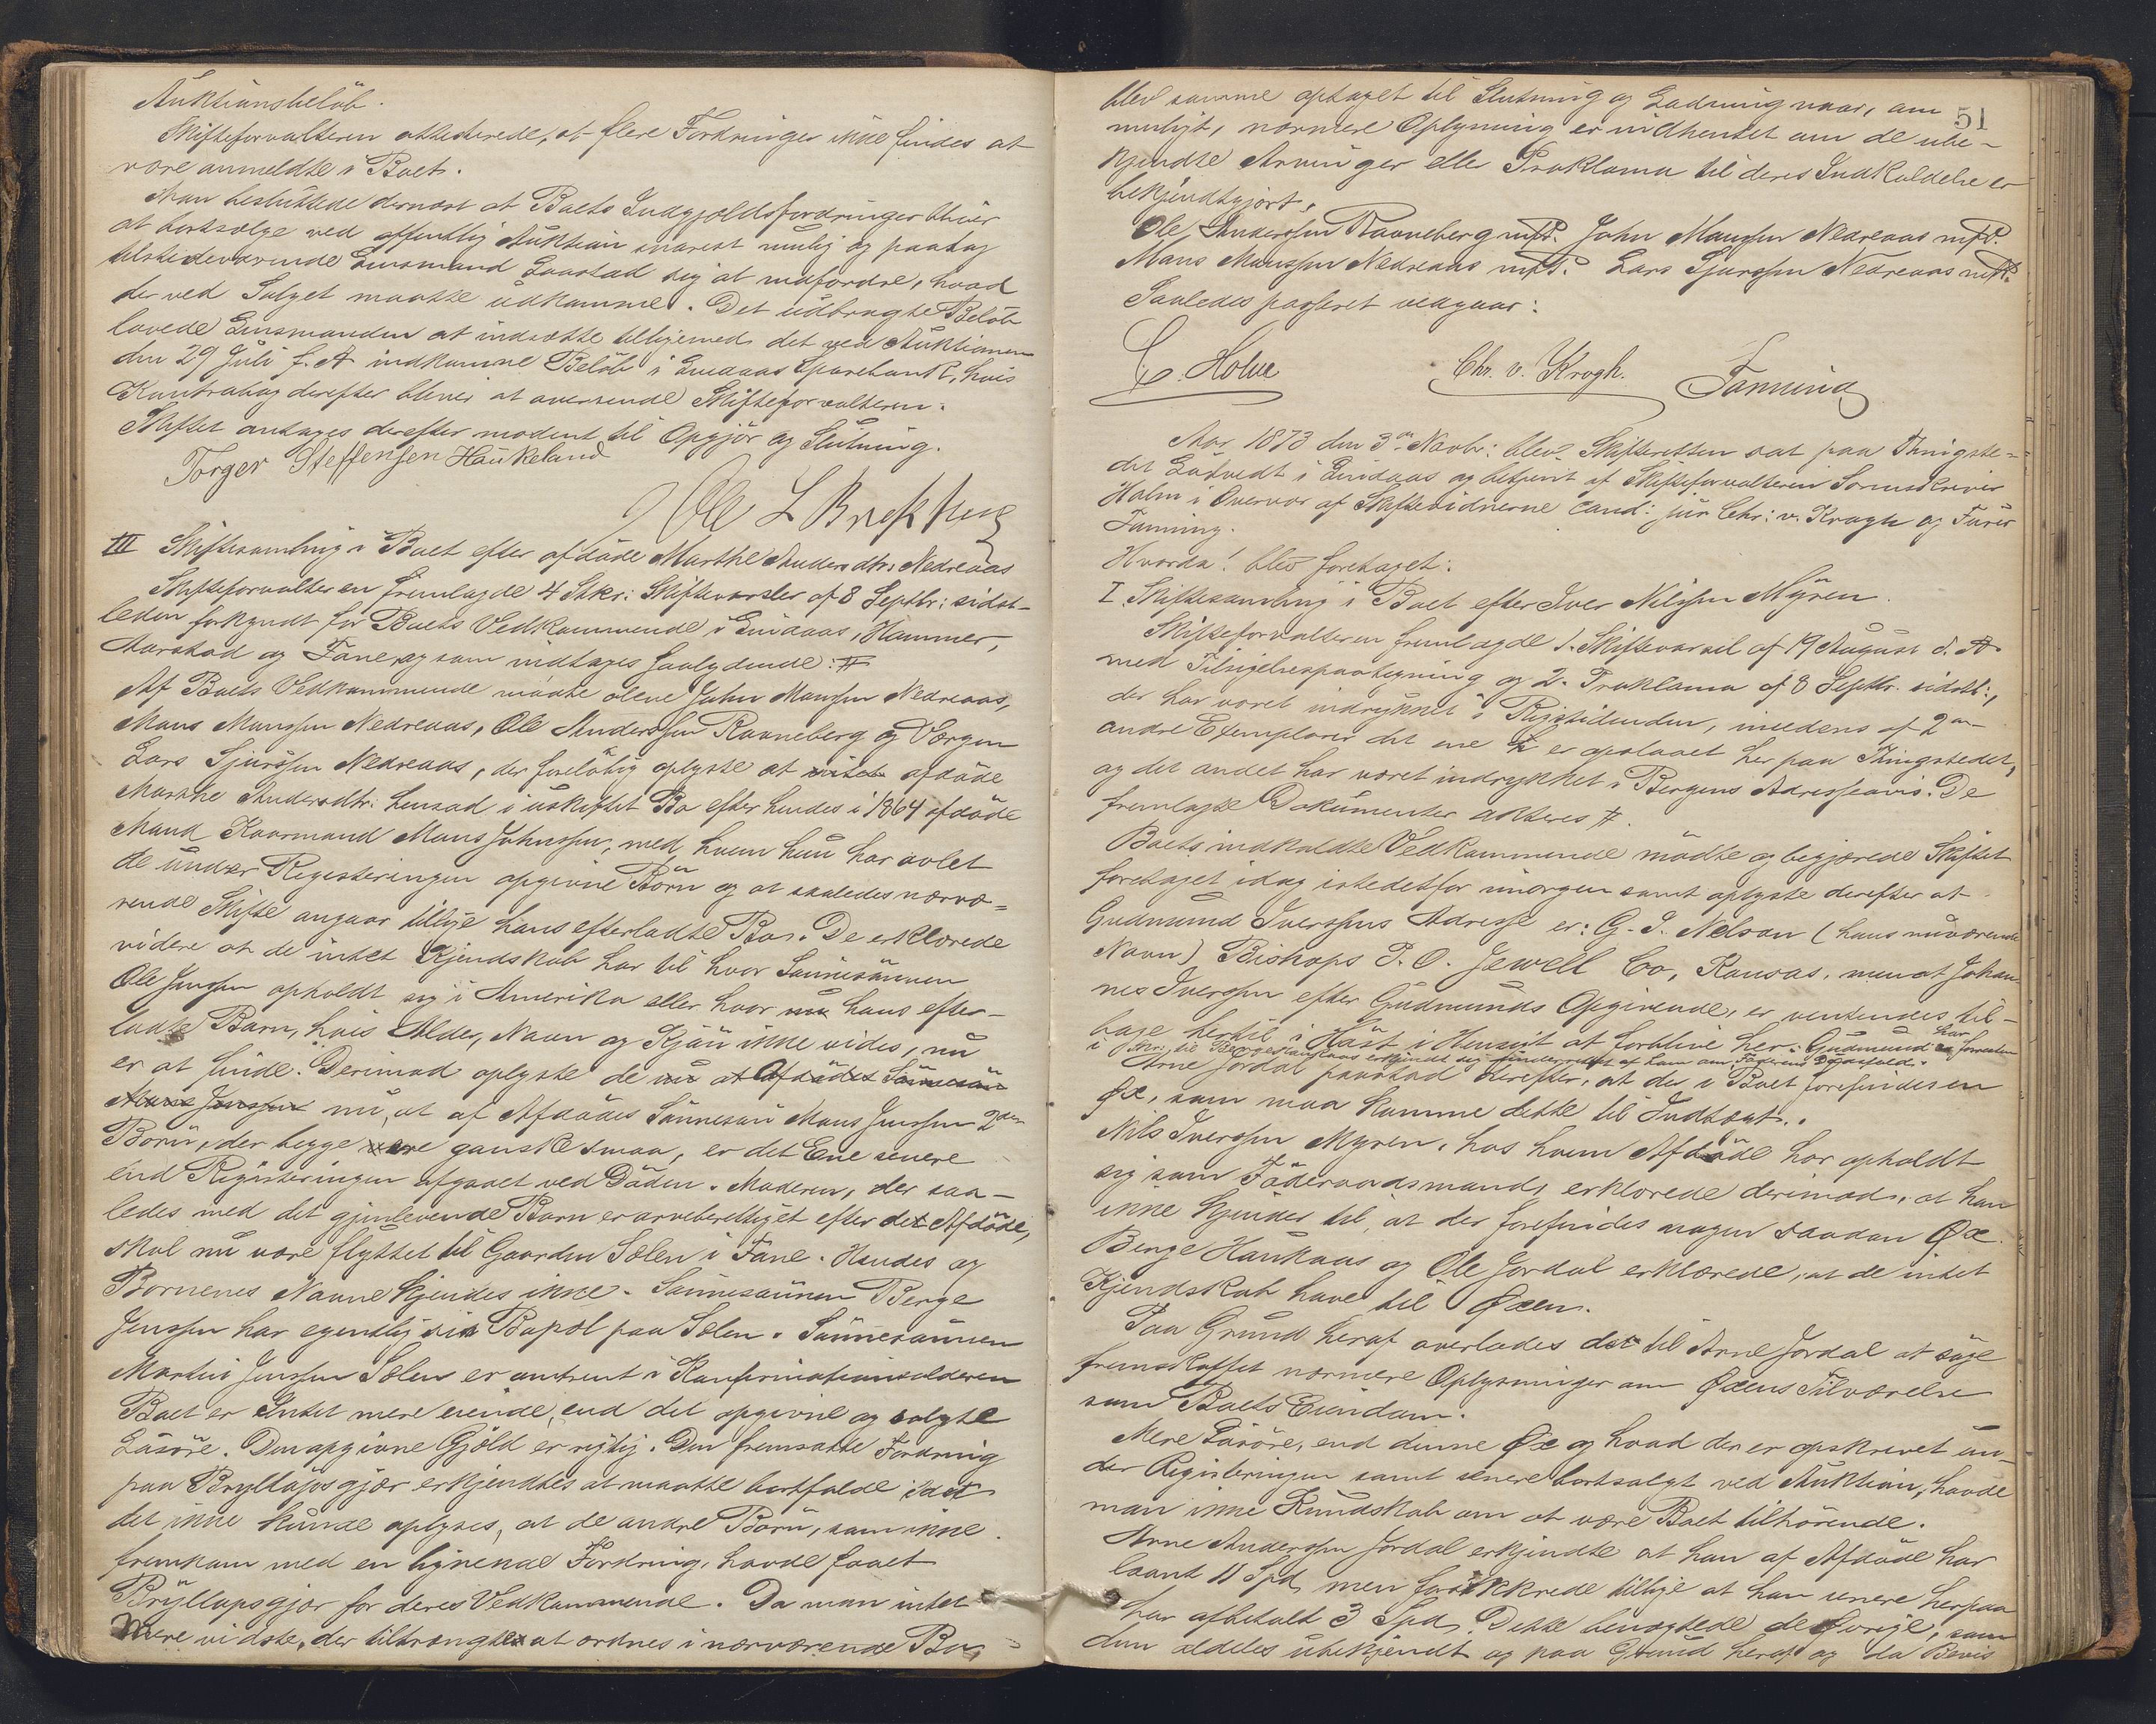 Auktionsbeløb.
Skifteforvalteren attesterede, at flere Fordringer ikke findes at
være anmeldte i Boet.
Man besluttede dernæst at Boets Indgjældsfordringer bliver
at bortsælge ved offentlig Auktion snarest mulig og paatog
tilstedeværende Lensmand Laastad sig at indfordre, hvad
der ved Salget maatte udkomme. Det udbragte Beløb
lovede Lensmanden at indsætte tilligemed det ved Auktionen
den 29 Juli f. A indkomne Beløb i Lindaas Sparebank, hvis
Kontrabog derefter bliver at oversende Skifteforvalteren.
Skiftet antages derefter modent til Opgjør og Slutning.
Torger Steffensen Haukeland
Ole L Brekkhus
III Skiftesamling i Boet efter afdøde Marthe Andersdtr: Nedreaas
Skifteforvalteren fremlagde 4 Stkr: Skiftevarsler af 8 Septbr: sidst-
leden forkyndt for Boets Vedkommende i Lindaas, Hammer,
Aarstad og Fane, og som indtages saalydende: #
Af Boets Vedkommende mødte alene John Monssen Nedreaas,
Mons Monssen Nedreaas, Ole Anderssen Ravneberg og Værgen
Lars Sjurssen Nedreaas, der foreløbig oplyste at afdøde
Marthe Andersdtr: hensad i uskiftet Bo efter hendes i 1864 afdøde
Mand Kaarmand Mons Johnssen, med hvem hun har avlet
de under Registeringen opgivne Børn og at saaledes nærvæ=
rende Skifte angaar tillige hans efterladte Bo. De erklærede
videre at de intet Kjendskab har til hvor Sønnesønnen
Ole Jenssen opholdt sig i Amerika eller hvor nu hans efter-
ladte Barn, hvis Alder, Navn og Kjøn ikke vides, nu
er at finde. Derimod oplyste de nu at Afdødes Sønnesøn
Mons Jenssen nu, at af Afdødes Sønnesøn Mons Jenssen 2de
Børn, der begge vare ganske smaa, er det Ene senere
end Registeringen afgaaet ved Døden. Moderen, der saa-
ledes med det gjenlevende Barn er arveberettiget efter det Afdøde,
skal nu være flyttet til Gaarden Sælen i Fane. Hendes og
Børnenes Navne kjendes ikke. Sønnesønnen Berge
Jenssen har egentlig sin Bopæl paa Sælen. Sønnesønnen
Martin Jenssen Sælen er omtrent i Konfirmationsalderen
Boet er Intet mere eiende, end det opgivne og solgte
Løsøre. Den opgivne Gjæld er rigtig. Den fremsatte Fordring
paa Bryllupsgjær erkjendtes at maatte bortfalde idet
det ikke kunde oplyses, at de andre Børn, som ikke
fremkom med en lignende Fordring, havde faaet
Bryllupsgjør for deres Vedkommende. Da man intet
Mere vidste, der tiltrængtes at ordnes i nærværende Bo,
51
blev samme optaget til Slutning og Lodning naar, om
muligt, nærmere Oplysning er indhentet om de ube-
kjendte Arvinger eller Proklama til deres Indkaldelse er
bekjendtgjort.
Ole Anderssen Ravneberg mfP. John Monssen Nedreaas mfP.
Mons Monssen Nedreaas mfP. Lars Sjurssen Nedreaas mfP.
Saaledes passeret vedgaar:
C. Holm Chr. v. Krogh. Fanning
Aar 1873 den 3die Novbr: blev Skifteretten sat paa Thingste=
det Lødvedt i Lindaas og betjent af Skifteforvalteren Sorenskriver
Holm i Overvær af Skiftevidnerne cand: jur Chr: v. Krogh og Furer
Fanning.
Hvorda! blev foretaget:
I. Skiftesamling i Boet efter Iver Nilssen Myren.
Skifteforvalteren fremlagde 1. Skiftevarsel af 19 August d. A.
med Tilsigelsespaategning og 2. Proklama af 8 Septbr. sidstl:,
der har været indrykket i Rigstidenden, imedens af 2de
andre Exemplarer det ene er opslaaet her paa Thingstedet,
og det andet har været indrykket i Bergens Adresseavis. De
fremlagte Dokumenter akteres #.
Boets indkaldte Vedkommende mødte og begjærede Skiftet
foretaget idag istedetfor imorgen samt oplyste derefter at
Gudmund Iverssens Adresse er: G. I. Nelson (hans nuværende
Navn) Bishops P. O. Jewell Co, Kansas, men at Johan-
nes Iverssen efter Gudmunds Opgivende, er ventendes til-
bage hertil i Høst i Hensigt at forblive her. Gudmund har forresten
i Skr: til Berge Haukaas erkjendt sig underrettet af ham om Faderens Dødsfald.
Arne Jordal paastod derefter, at der i Boet forefindes en
Øx, som maa komme dette til Indtægt.
Nils Iverssen Myren, hos hvem Afdøde har opholdt
sig som Føderaadsmand, erklærede derimod, at han
ikke kjender til, at der forefindes nogen saadan Øx.
Berge Haukaas og Ole Jordal erklærede, at de intet
Kjendskab have til Øxen.
Paa Grund heraf overlades det til Arne Jordal at søge
fremskaffet nærmere Oplysninger om Øxens Tilværelse
som Boets Eiendom.
Mere Løsøre, end denne Øx og hvad der er opskrevet un-
der Registeringen samt senere bortsolgt ved Auktion, havde
man ikke Kundskab om at være Boet tilhørende.
Arne Anderssen Jordal erkjendte at han af Afdøde har
laant 11 Spd, men forsikkrede tillige at han senere herpaa
har afbetalt 3 Spd. Dette benægtede de Øvrige, som
dem aldeles ubekjendt og paa Grund heraf og da Bevis